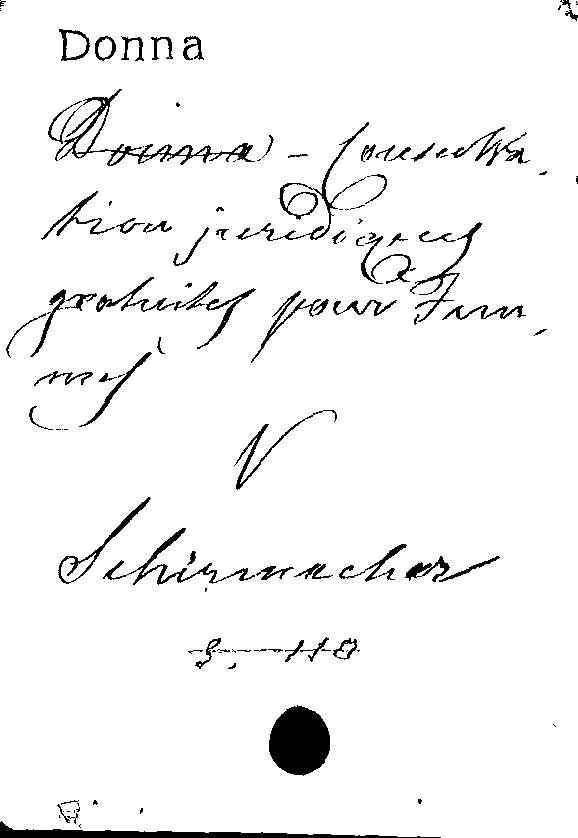 Donna
Donna – Consulta-
tion juridiques
gratuites pour Fem-
mes
V
Schirmacher
S. 118